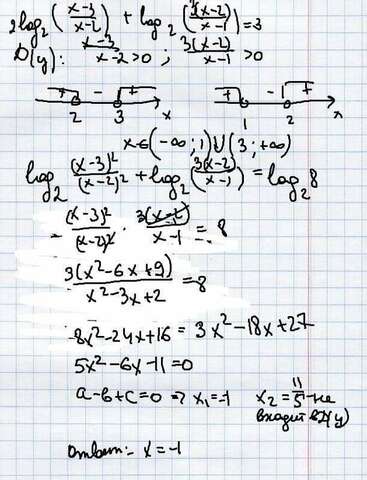 2log₂(x-3/x-2) + log₂(3(x-2)/x-1) = 3
D(y): x-3/x-2 > 0 ; 3(x-2)/x-1 > 0
+ - + + - +
2 3 x 1 2 x
x ∈ (-∞; 1) ∪ (3; +∞)
log₂ (x-3)²/(x-2)² + log₂ (3(x-2)/x-1) = log₂ 8
(x-3)²/(x-2)² · 3(x-2)/x-1 = 8
3(x²-6x+9)/x²-3x+2 = 8
8x²-24x+16 = 3x²-18x+27
5x²-6x-11=0
a-b+c=0 => x₁=-1 x₂ = 11/5 - не
входит в D(y)
Ответ: x=-1